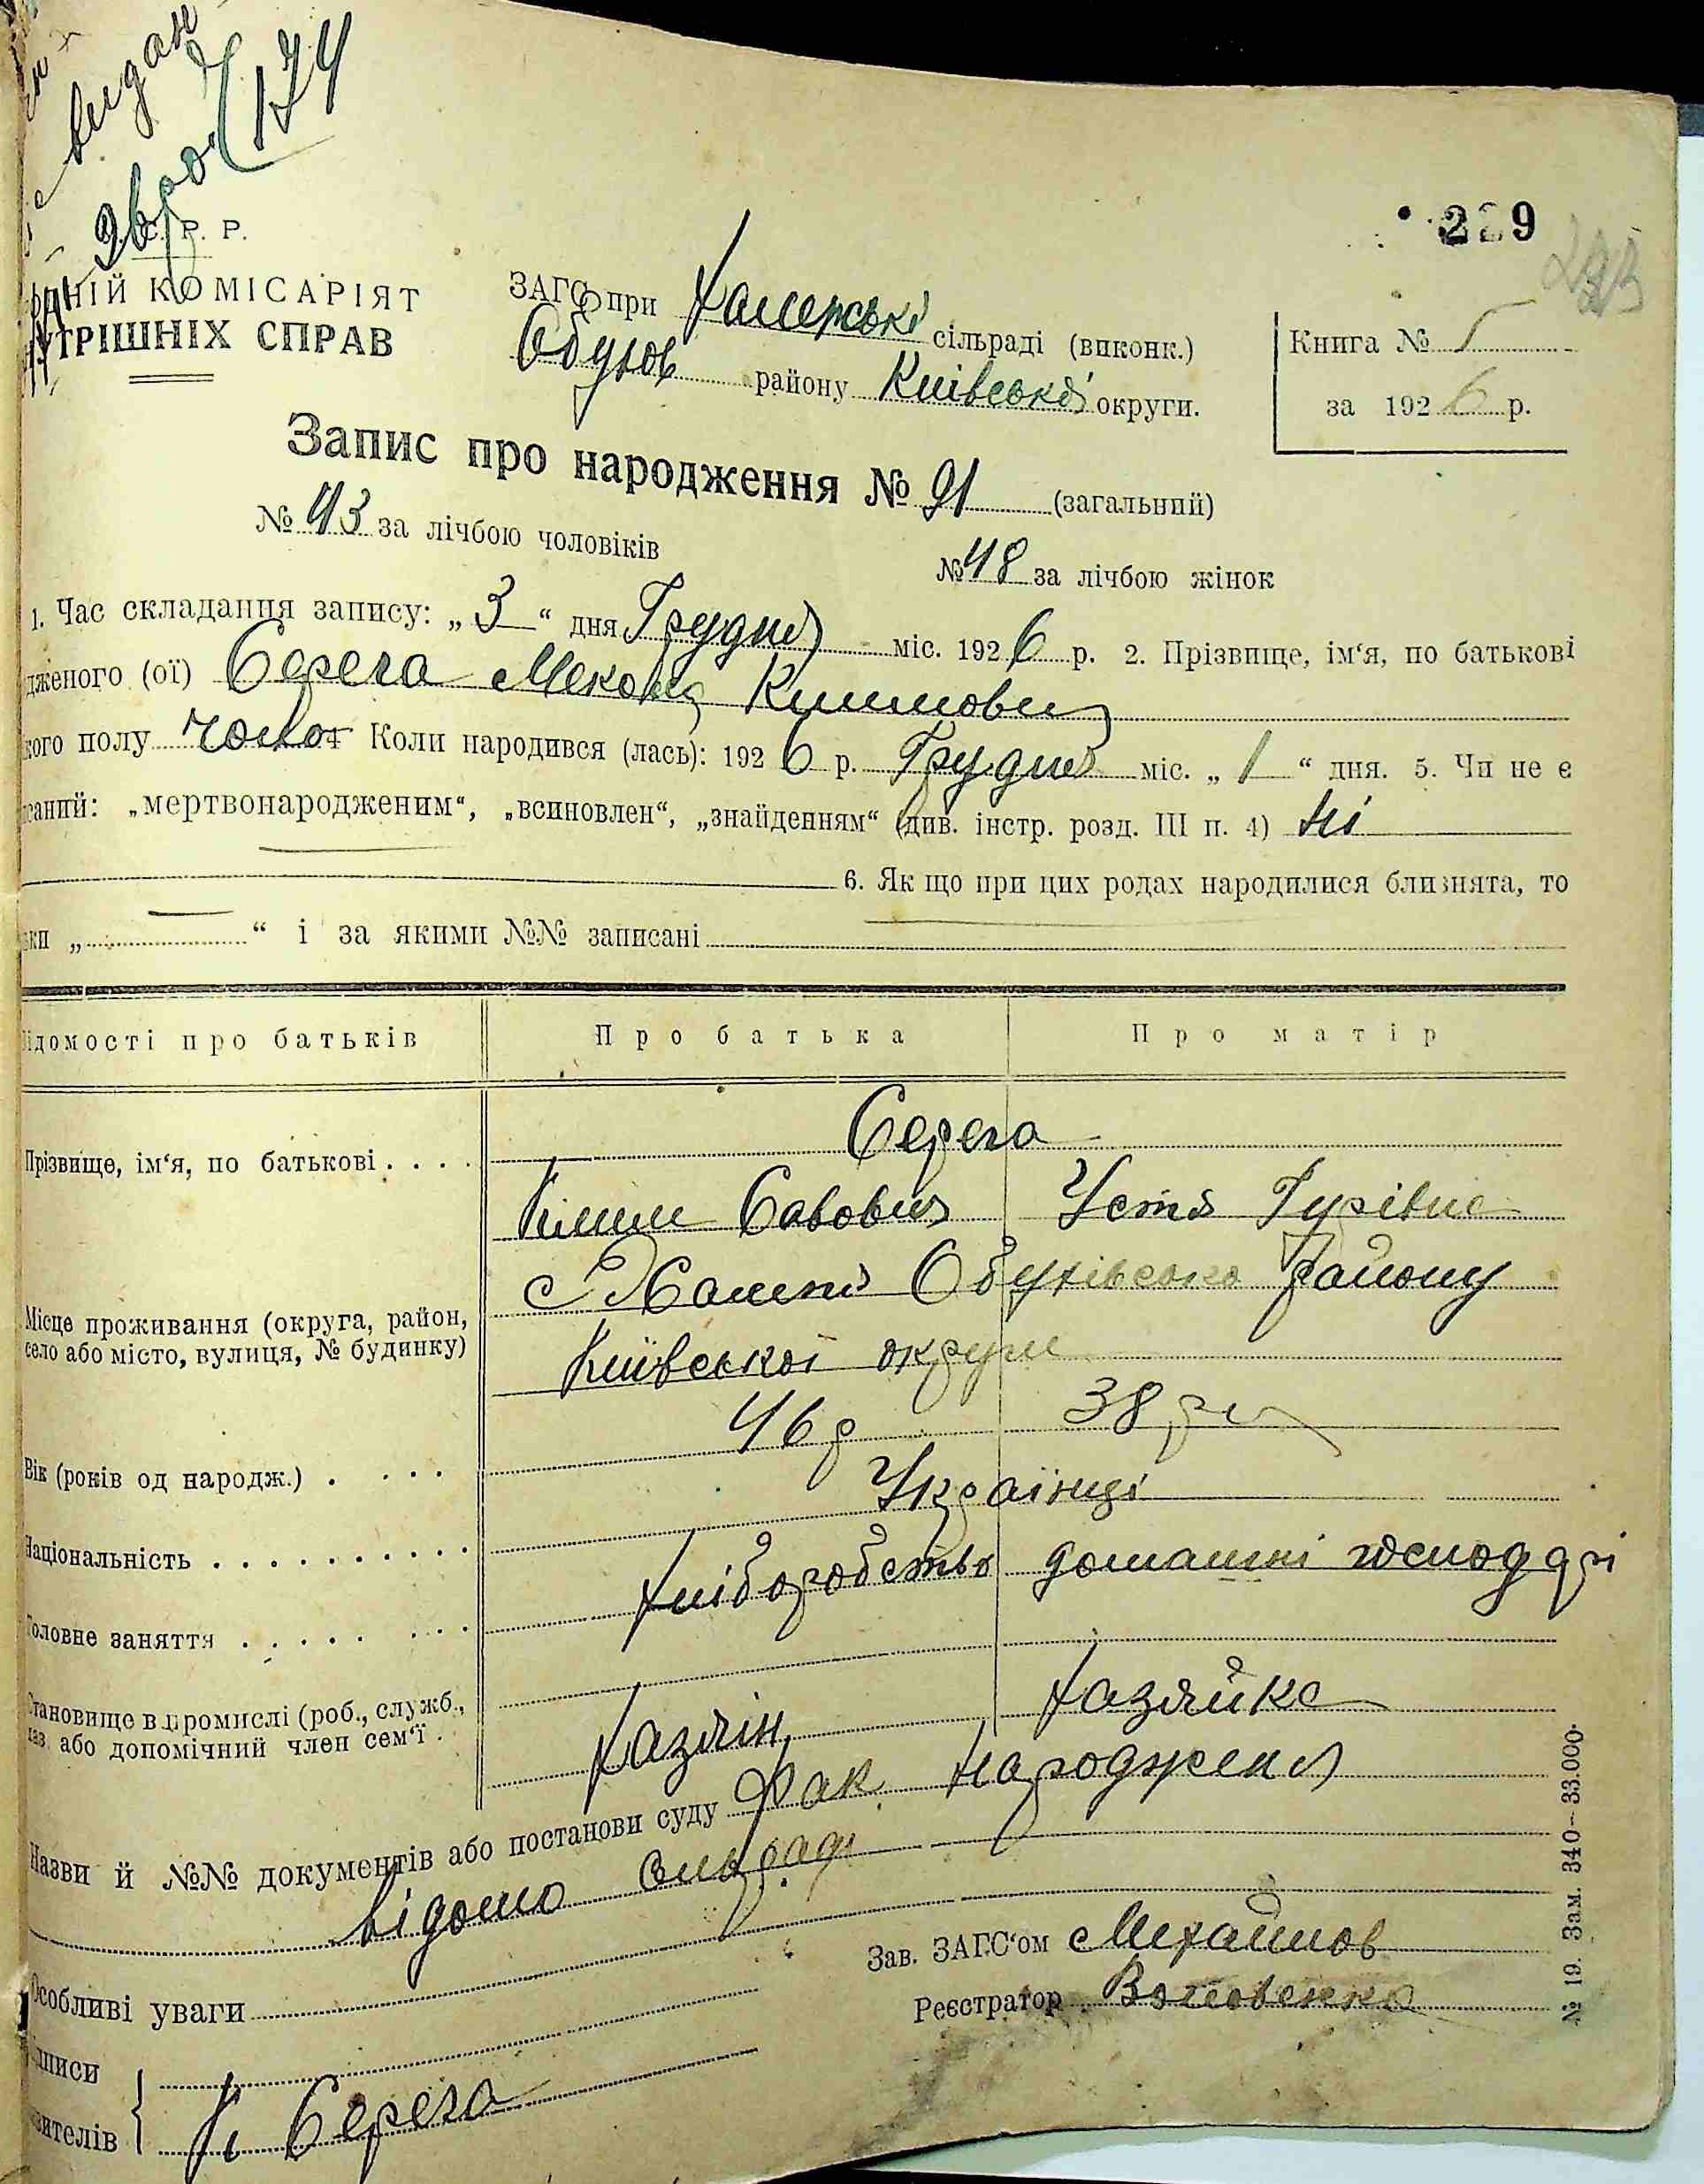 видан
С. Р. Р.
229
ДНІЙ КОМІСАРІЯТ
УТРІШНІХ СПРАВ
ЗАГС при Халепській сільраді (виконк.)
Обухов району Київської округи.
Книга № 5
за 1926 р.
Запис про народження № 91 (загальний)
№ 43 за лічбою чоловіків
№ 48 за лічбою жінок
1. Час складання запису: „3“ дня Грудня міс. 1926 р. 2. Прізвище, ім‘я, по батькові
дженого (ої) Серега Климович
кого полу чолов Коли народився (лась): 1926 р. Грудня міс. „1“ дня. 5. Чи не є
саний: „мертвонародженим“, „всиновлен“, „знайденням“ (див. інстр. розд. III п. 4) Ні
6. Як що при цих родах народилися близнята, то
ки „ “ і за якими №№ записані
ідомості про батьків Про батька Про матір
Серега
Прізвище, ім‘я, по батькові
Клим Савович Устя Гурівна
с Халепя Обухівсько району
Місце проживання (округа, район,
село або місто, вулиця, № будинку)
Київської округи
46 р 38 р
Вік (років од народж.)
Українці
Національність
хліборобство домашні господарі
Головне заняття
Становище в промислі (роб., служб.,
або допомічний член сем‘ї
хазяін хазяйка
Назви й №№ документів або постанови суду Фак народженя
відомо сільраді
Особливі уваги
Зав. ЗАГС‘ом Михайлов
Реєстратор
дписи
явителів К Серега
№ 19. Зам. 340—33.000.